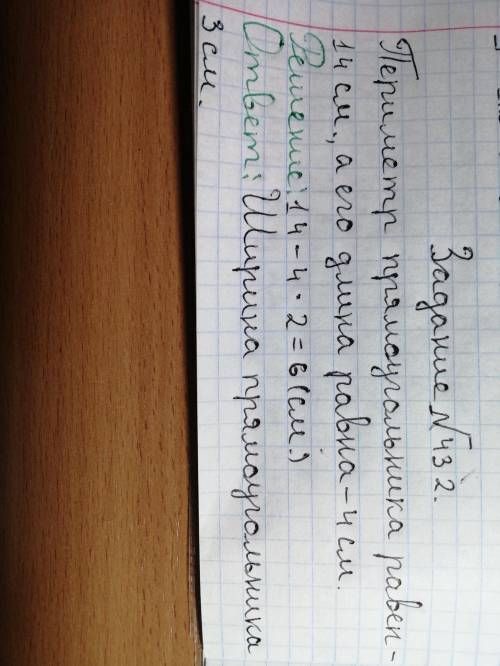 Задание №432.
Периметр прямоугольника равен-
14 см., а его длина равна-4 см.
Решение: 14-4·2=6(см.)
Ответ: Ширина прямоугольника
3 см.